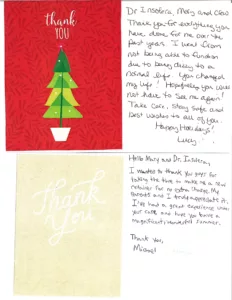 THANK
YOU
Dr Insoftcra, Mary and Crew
Thank you for everything you
have done for me over the
past years. I went from
not being able to function
due to being dizzy to a
normal life. You changed
my life! Hopefully you will
not have to see me again!
Take care, stay safe and
best wishes to all of you.
Happy Holidays!
Lucy
Thank
You
Hello Mary and Dr.
I wanted to thank you guys for
taking the time to make me a new
retainer for no extra charge. My
parents and I truly appreciate it.
I've had a great experience under
your care, and hope you have a
magnificent, wonderful summer.
Thank you,